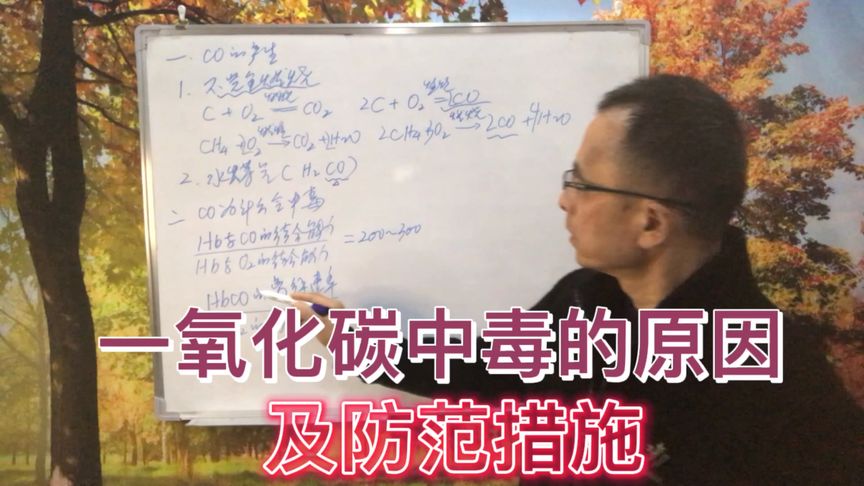 一. CO的产生
1. 不完全燃烧
C + O₂ 燃烧 CO₂ 2C + O₂ 燃烧 2CO
CH₄ + 2O₂ 燃烧→ CO₂ + 2H₂O 2CH₄ + 3O₂ 燃烧→ 2CO + 4H₂O
2. 水煤气 ( H₂ CO )
二 CO为什么会中毒
Hb与CO的结合能力
= 200~300
Hb与O₂的结合能力
HbCO的离解速率
一氧化碳中毒的原因
及防范措施